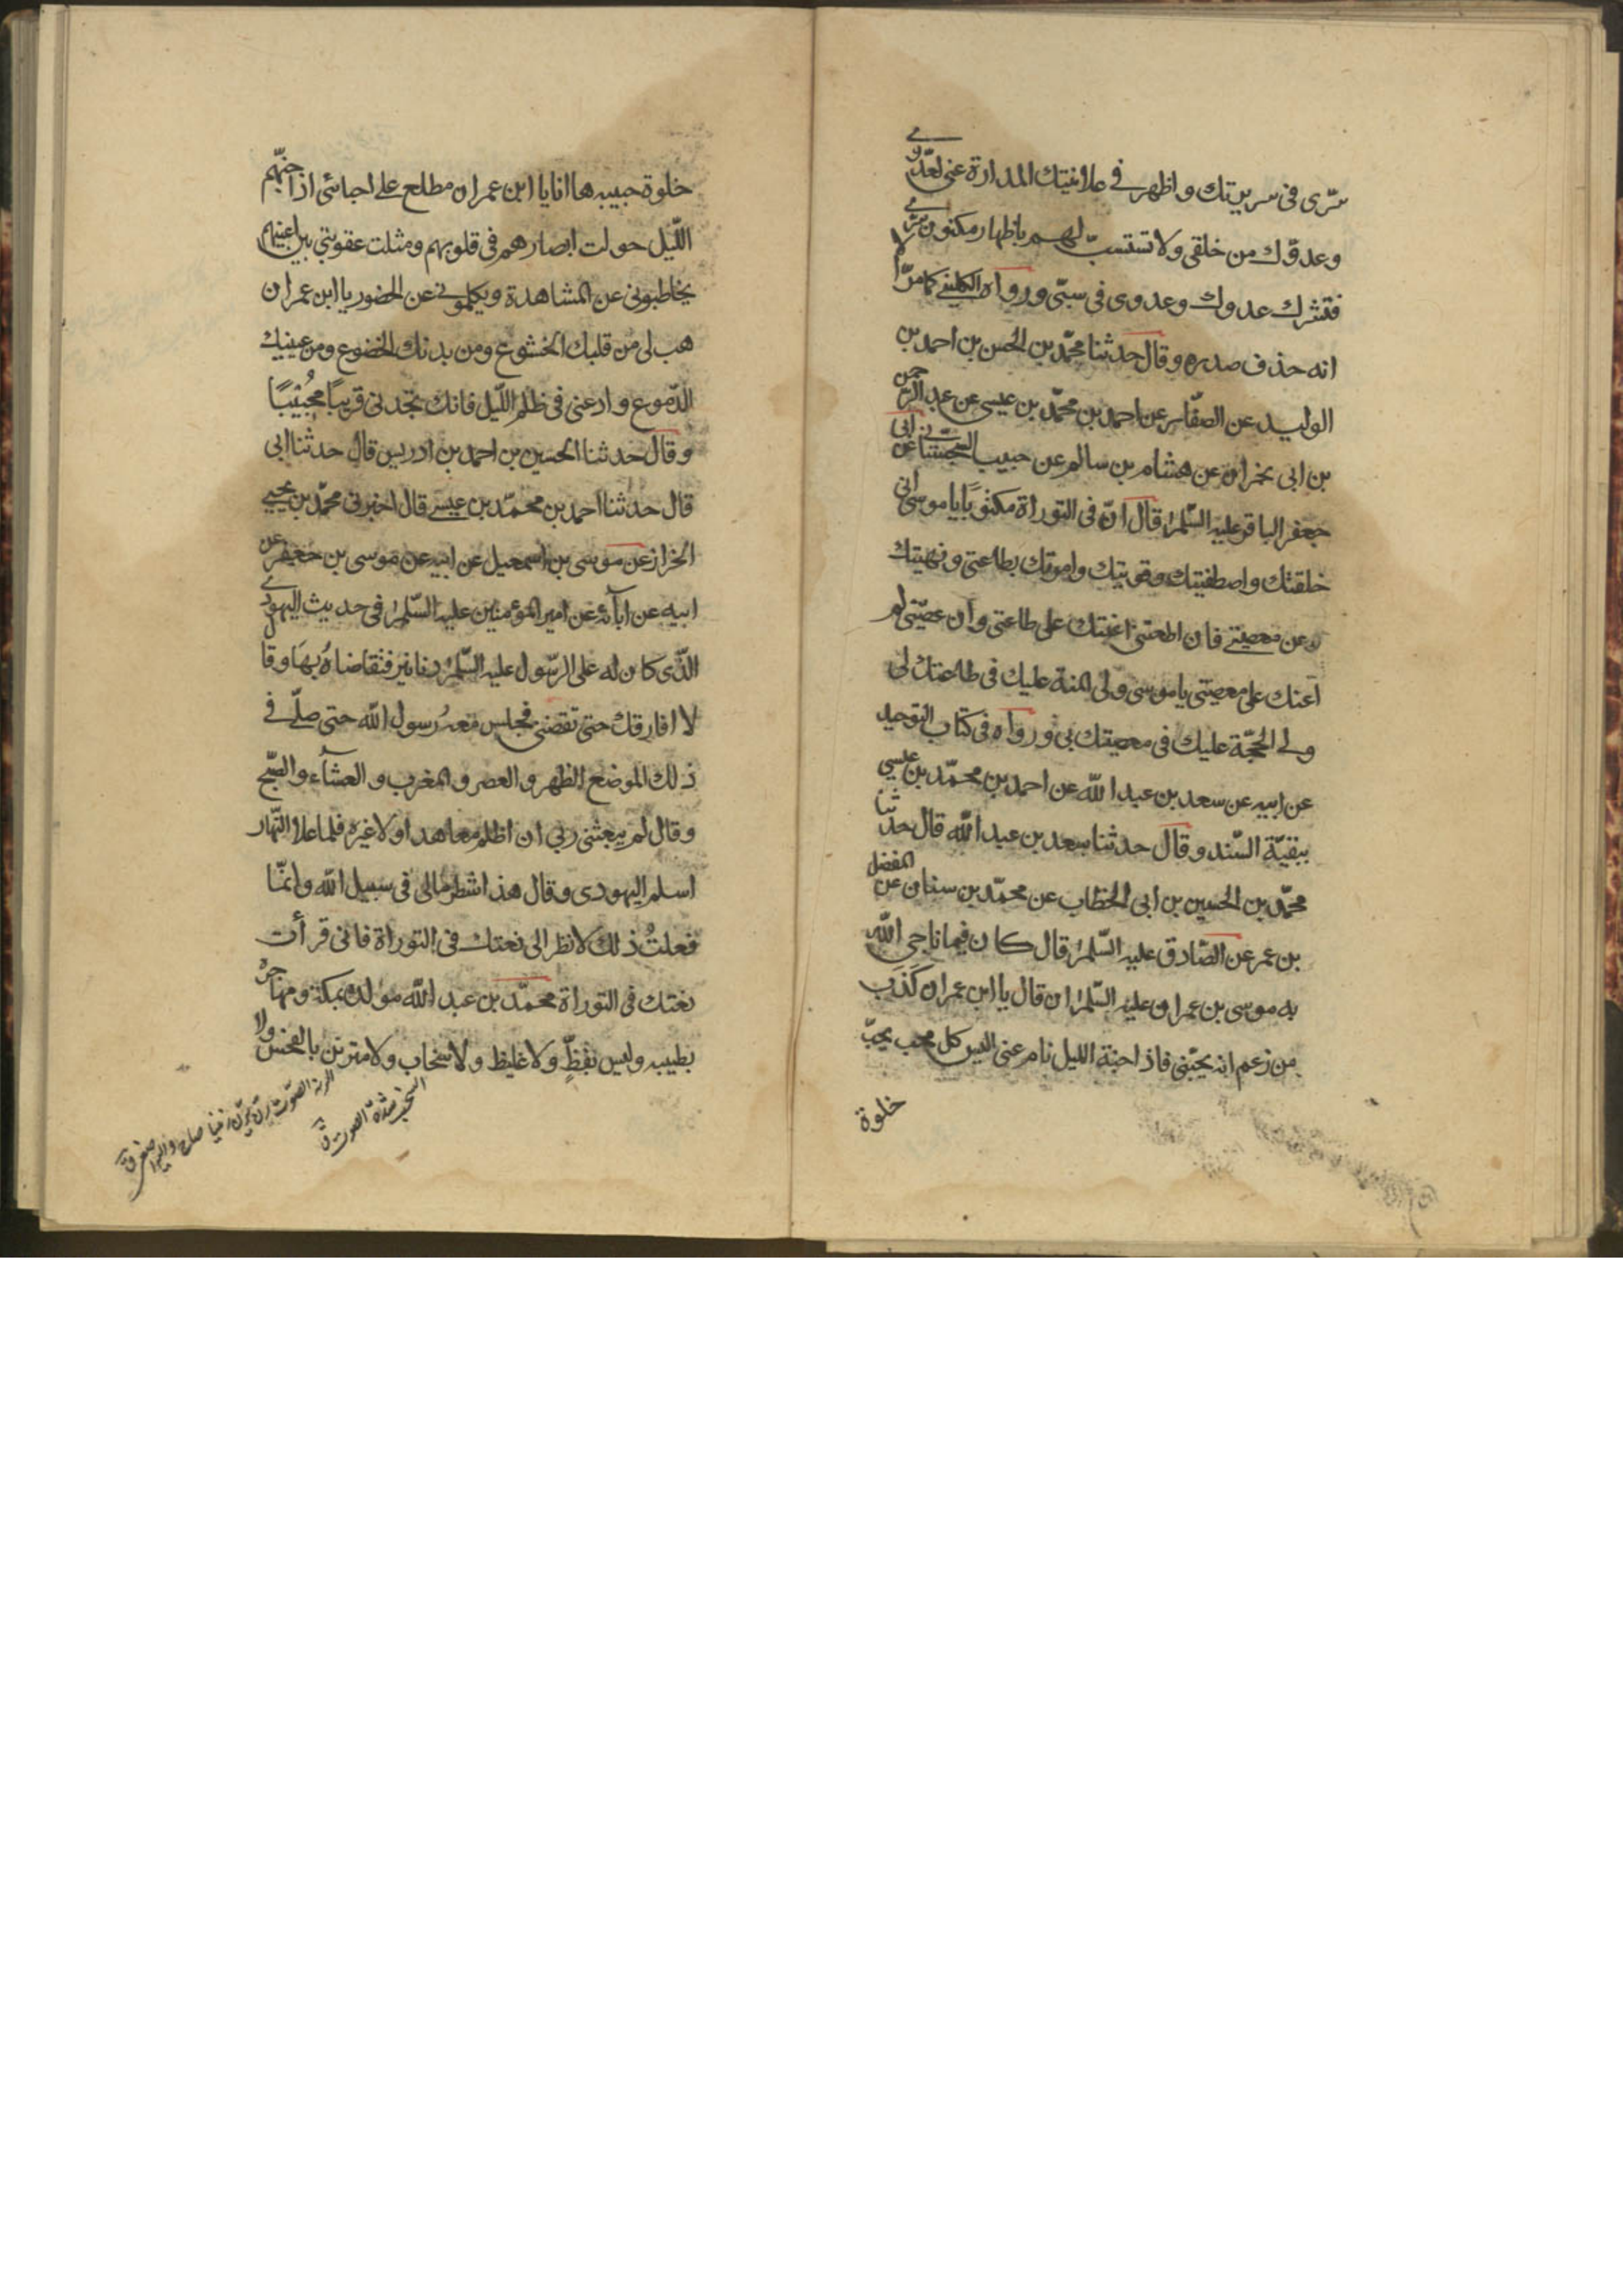 سرّى فى سريرتك واظهر فى علانيتك المداراة عنى لعدوّى
وعدوّك من خلقى ولا تستسبّ لهم باظهار مكنون سرّى
فتشرك عدوك وعدوى فى سبّى ورواه الكلينى كما مرّ الا
انه حذف صدره وقال حدثنا محمّد بن الحسن بن احمد بن
الوليد عن الصفّار عن احمد بن محمّد بن عيسى عن عبد الرّحمن
بن ابى نجران عن هشام بن سالم عن حبيب السجستانى عن ابى
جعفر الباقر عليه السّلم قال انّ فى التوراة مكتوبًا يا موسى انى
خلقتك واصطفيتك وقويتك وامرتك بطاعتى ونهيتك
عن معصيتى فان اطعتنى اعنتك على طاعتى وان عصيتنى لم
اعنك على معصيتى يا موسى ولى المنة عليك فى طاعتك لى
ولى الحجّة عليك فى معصيتك بى ورواه فى كتاب التوحيد
عن ابيه عن سعد بن عبد الله عن احمد بن محمّد بن عيسى
ببقيّة السّند وقال حدثنا سعد بن عبد الله قال حدثنا
محمّد بن الحسين بن ابى الخطاب عن محمّد بن سنان عن المفضل
بن عمر عن الصّادق عليه السّلم قال كان فيما ناجى الله
به موسى بن عمران عليه السّلم ان قال يا ابن عمران كَذَب
من زعم انه يحبّنى فاذا جنة الليل نام عنى اليس كل محب يحبّ
خلوة
خلوة حبيبه ها انا يا ابن عمران مطلع على احبائى اذا جنّهم
اللّيل حولت ابصارهم فى قلوبهم ومثلت عقوبتى بين اعينهم
يخاطبونى عن المشاهدة ويكلمونى عن الحضور يا ابن عمران
هب لى من قلبك الخشوع ومن بدنك الخضوع ومن عينيك
الدّموع وادعنى فى ظلم اللّيل فانك تجدنى قريبًا مجُيبًا
وقال حدثنا الحسين بن احمد بن ادريس قال حدثنا ابى
قال حدثنا احمد بن محمّد بن عيسى قال اخبرنى محمّد بن يحيى
الخزاز عن موسى بن اسمعيل عن ابيه عن موسى بن جعفر عن
ابيه عن آبائه عن امير المؤمنين عليه السّلم فى حديث اليهودى
الذّى كان له على الرّسول عليه السّلم دنانير فتقاضاهُ بها وقال
لا افارقك حتى تقضنى فجلس معهُ رسول الله حتى صلّى فى
ذلك الموضع الظهر والعصر والمغرب والعشآء والصّبح
وقال لم يبعثنى ربى ان اظلم معاهدا ولا غيره فلما علا النّهار
اسلم اليهودى وقال هذا شطر مالى فى سبيل الله وانمّا
فعلتُ ذلك لانظر الى نعتك فى التوراة فانى قرأت
نعتك فى التوراة محمّد بن عبد الله مولده بمكة ومهاجرُه
بطيبه وليس بفظٍّ ولا غليظ ولا سخاب ولا مترنن بالفحش ولا
السخب شدة الصوت ق
الرنة الصّوت رنّ يرنّ رنينا صاح واليه اصغى ق